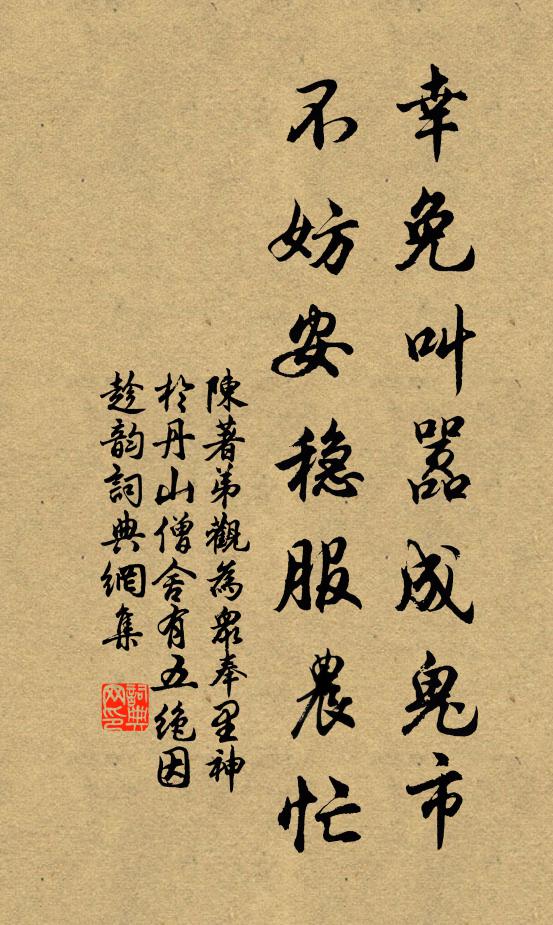 幸免叫嚣成鬼市
不妨安稳服農忙
陳著弟觀為衆奉里神
於丹山僧舍有五绝因
趁韵詞典網集
詞典
网印